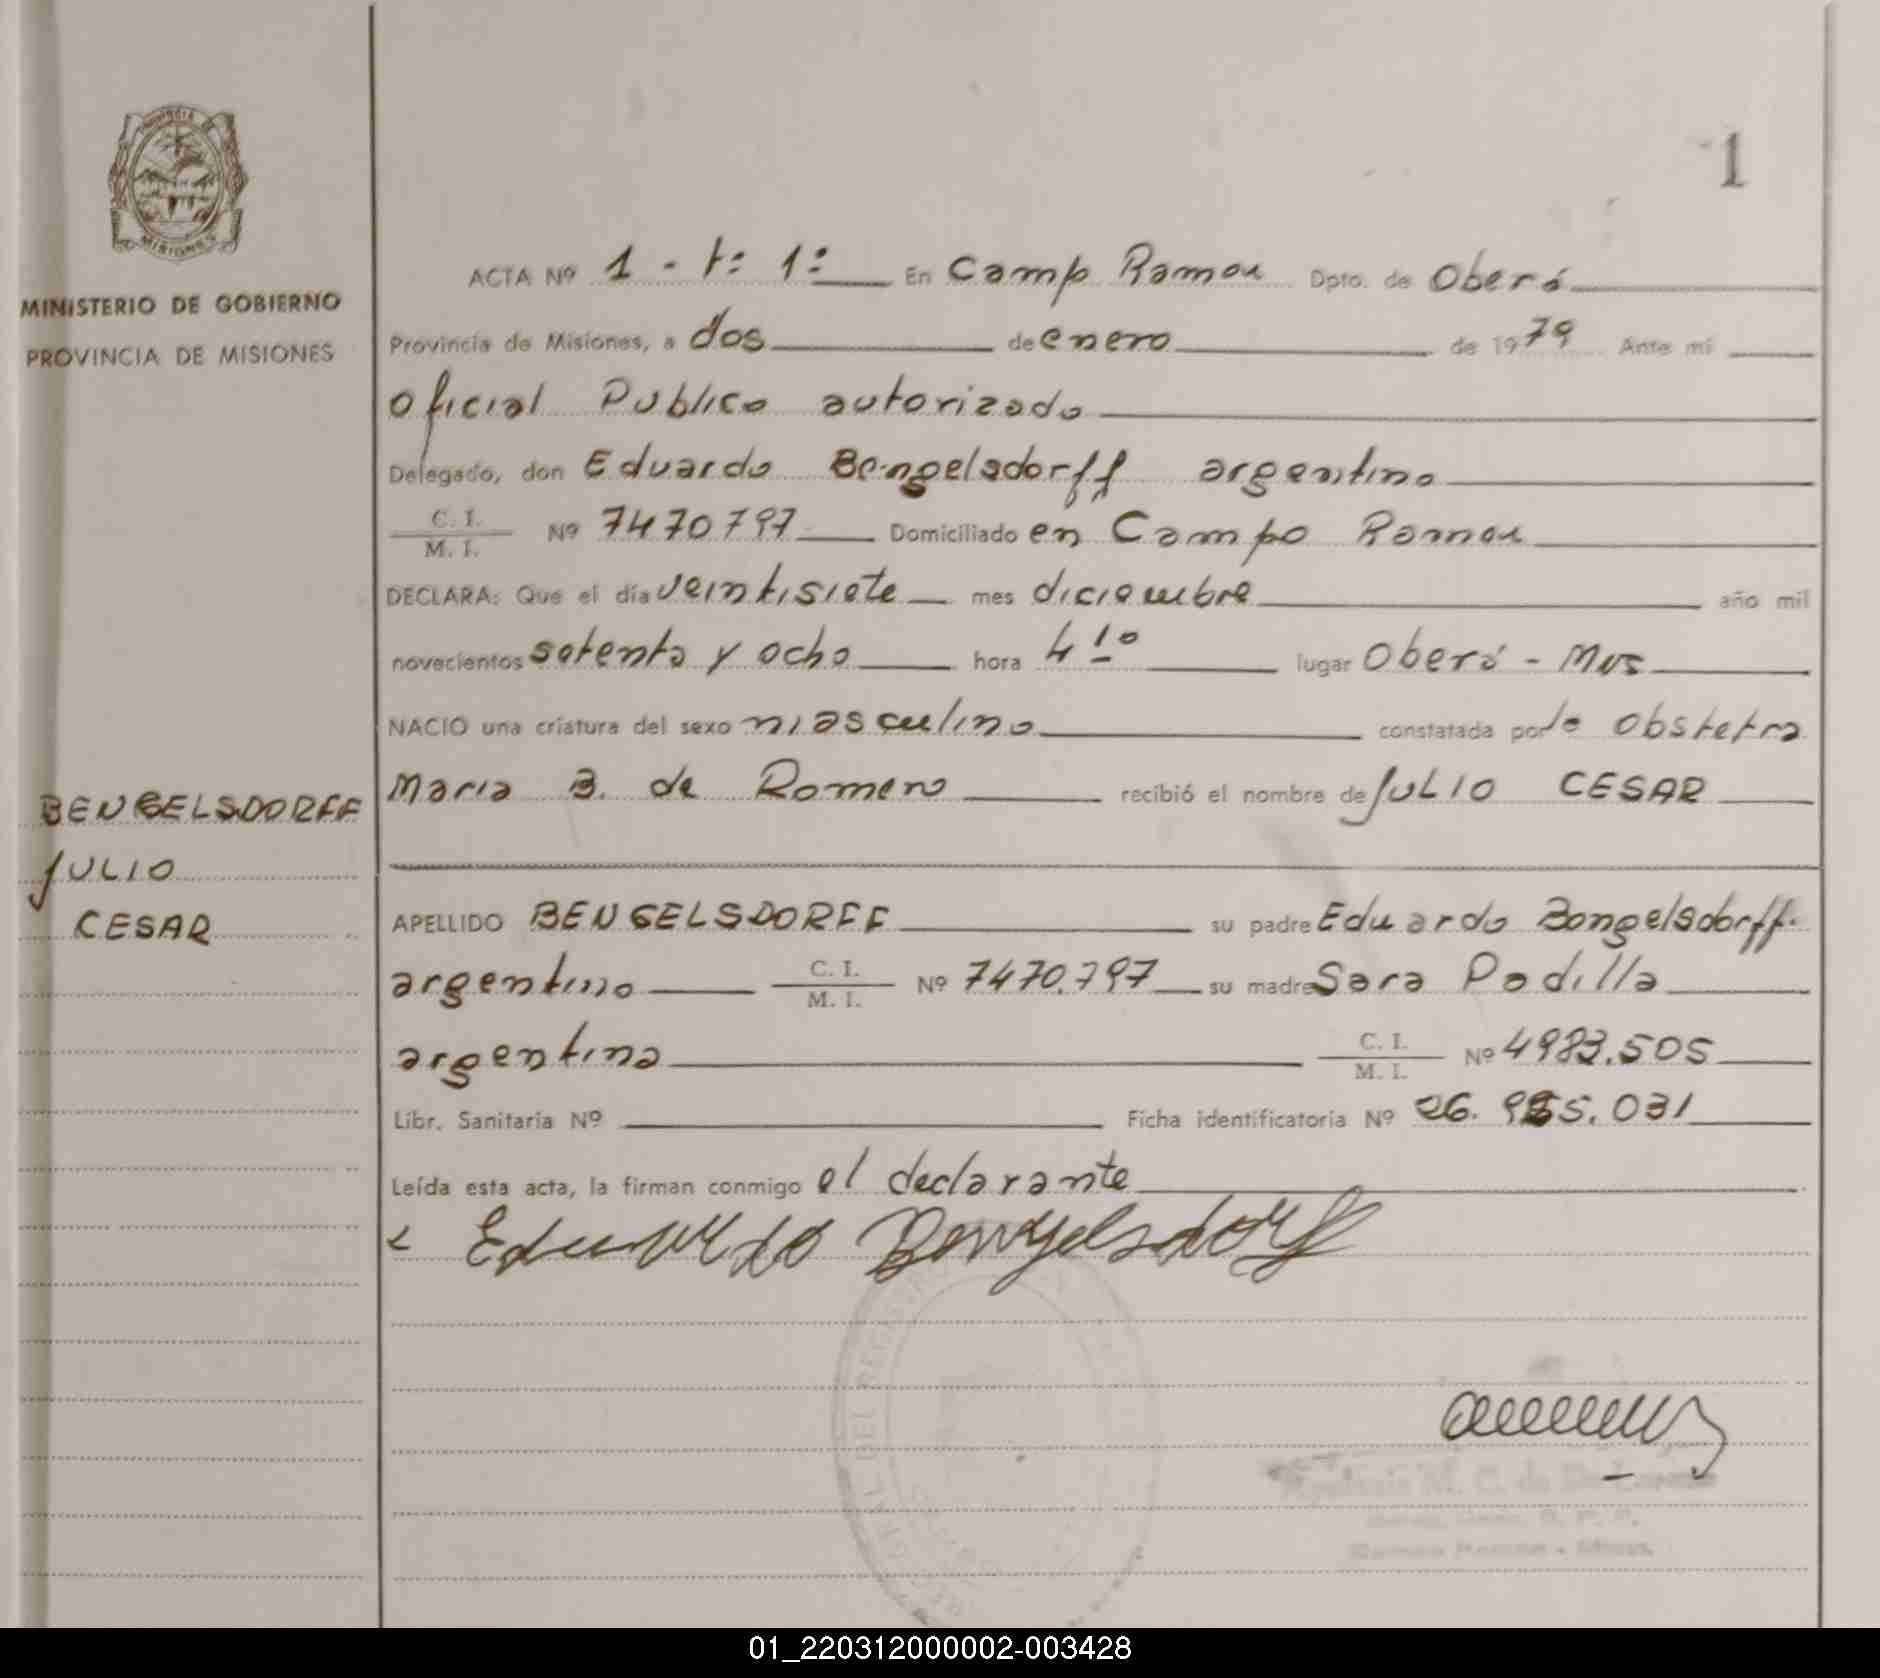 1
PROVINCIA DE
MISIONES
MINISTERIO DE GOBIERNO
PROVINCIA DE MISIONES
ACTA Nº 1 - t: 1º En Camp Ramon Dpto. de Oberá
Provincia de Misiones, a dos de enero de 1979 Ante mi
Oficial Publico autorizado
Delegado, don Eduardo Bengelsdorff argentino
C. I.
M. I. Nº 7470797 Domiciliado en Campo Ramon
DECLARA: Que el día veintisiete mes diciembre año mil
novecientos setenta y ocho hora 4 10 lugar Oberá - Mns
NACIO una criatura del sexo masculino constatada por la Obstetra
Maria B. de Romero recibió el nombre de JULIO CESAR
BENGELSDORFF
JULIO
CESAR
APELLIDO BENGELSDORFF su padre Eduardo Bengelsdorff.
argentino C. I.
M. I. Nº 7470.797 su madre Sara Padilla
argentina C. I.
M. I. Nº 4983.505
Libr. Sanitaria Nº Ficha identificatoria Nº 26. 955. 031
Leída esta acta, la firman conmigo el declarante
Eduardo Bengelsdorff
DEL REGIS
M. C. de De
01_220312000002-003428